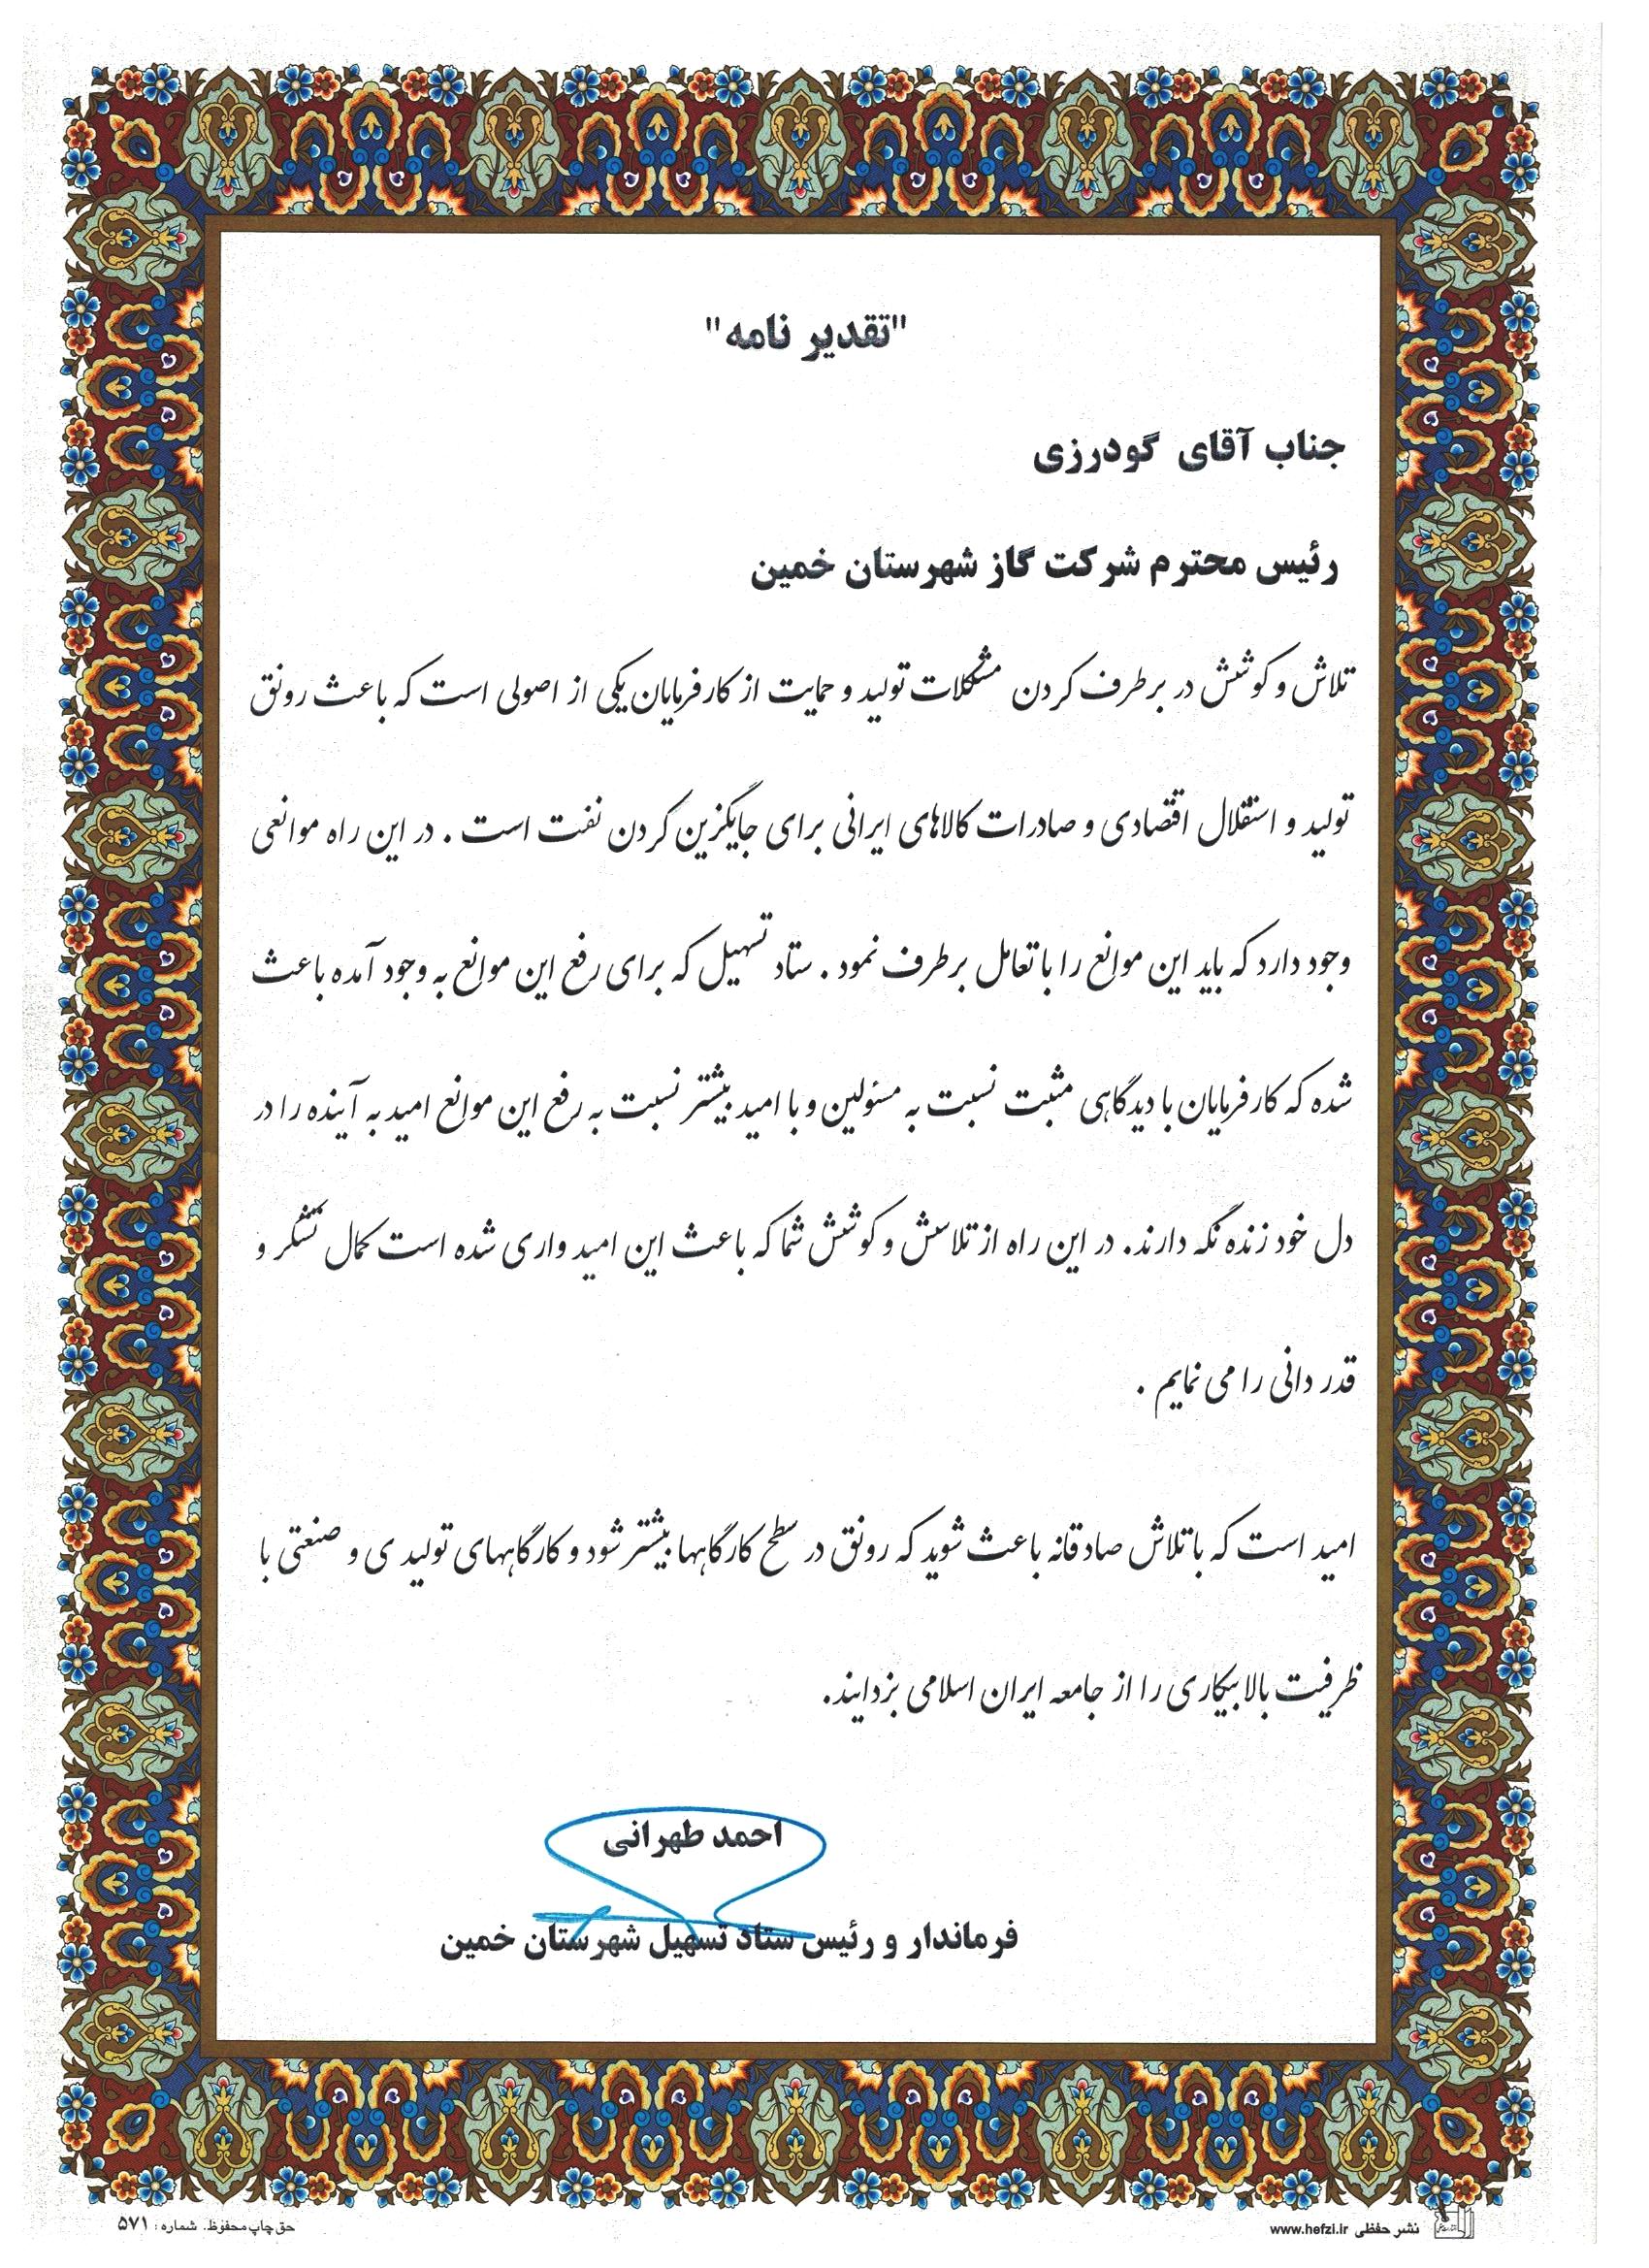 "تقدیر نامه"
جناب آقای گودرزی
رئیس محترم شرکت گاز شهرستان خمین
تلاش و کوشش در برطرف کردن مشکلات تولید و حمایت از کارفرمایان یکی از اصولی است که باعث رونق
تولید و استقلال اقتصادی و صادرات کالاهای ایرانی برای جایگزین کردن نفت است . در این راه موانعی
وجود دارد که باید این موانع را با تعامل برطرف نمود . ستاد تسهیل که برای رفع این موانع به وجود آمده باعث
شده که کارفرمایان با دیدگاهی مثبت نسبت به مسئولین و با امید بیشتر نسبت به رفع این موانع امید به آینده را در
دل خود زنده نگه دارند. در این راه از تلاش و کوشش شما که باعث این امید واری شده است کمال تشکر و
قدر دانی را می نمایم .
امید است که با تلاش صادقانه باعث شوید که رونق در سطح کارگاهها بیشتر شود و کارگاههای تولید ی و صنعتی با
ظرفیت بالا بیکاری را از جامعه ایران اسلامی بزدایند.
احمد طهرانی
فرماندار و رئیس ستاد تسهیل شهرستان خمین
نشر حفظی www.hefzi.ir
حق چاپ محفوظ. شماره: ۵۷۱